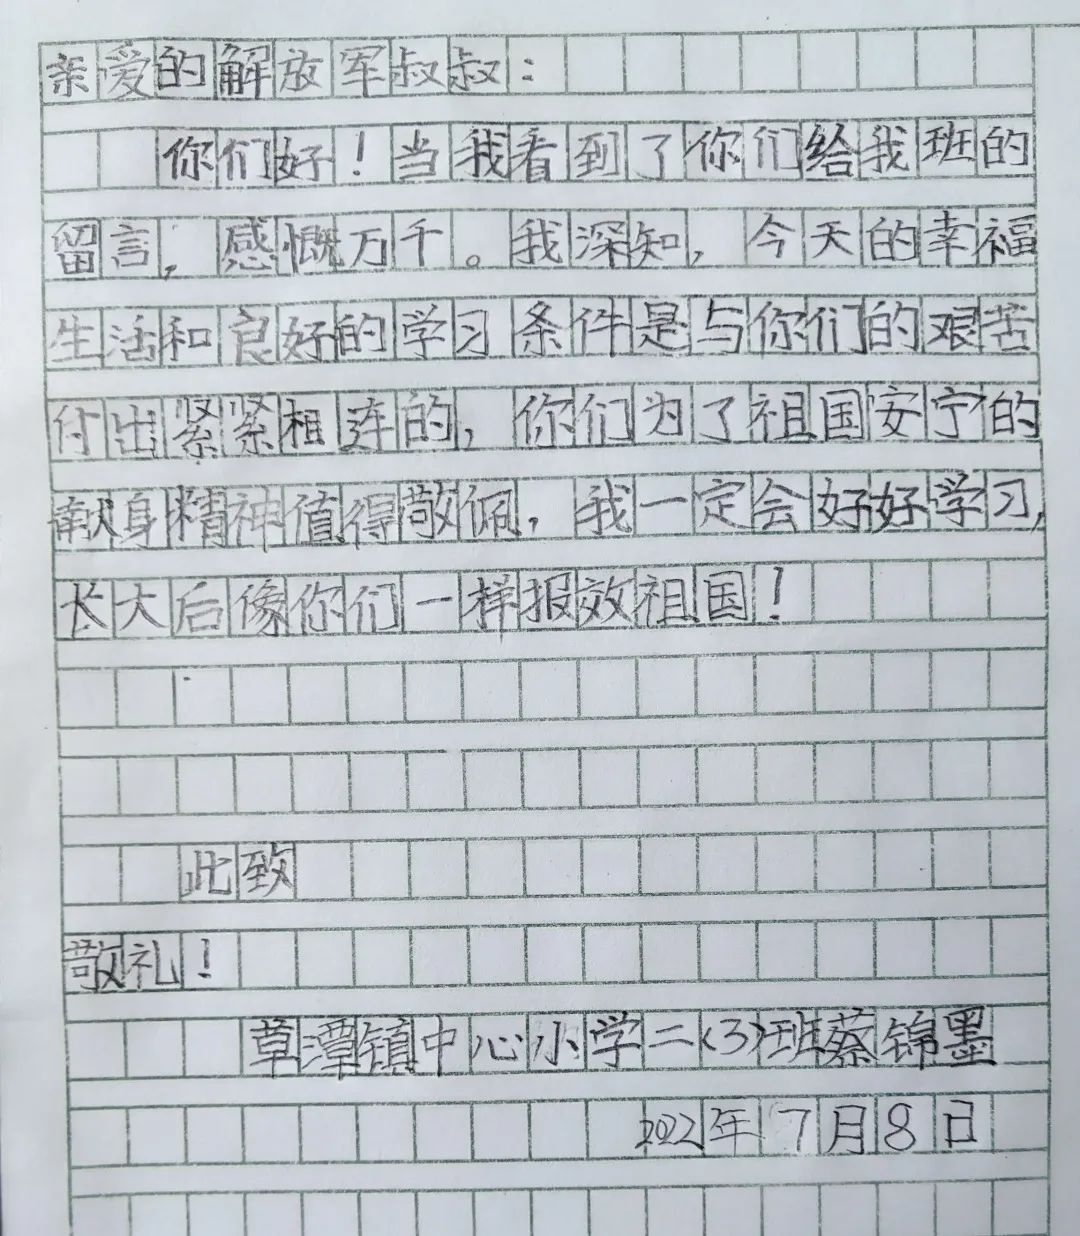 亲爱的解放军叔叔：
你们好！当我看到了你们给我班的
留言，感慨万千。我深知，今天的幸福
生活和良好的学习条件是与你们的艰苦
付出紧紧相连的，你们为了祖国安宁的
献身精神值得敬佩，我一定会好好学习，
长大后像你们一样报效祖国！
此致
敬礼！
草潭镇中心小学二(3)班蔡锦墨
2022年7月8日